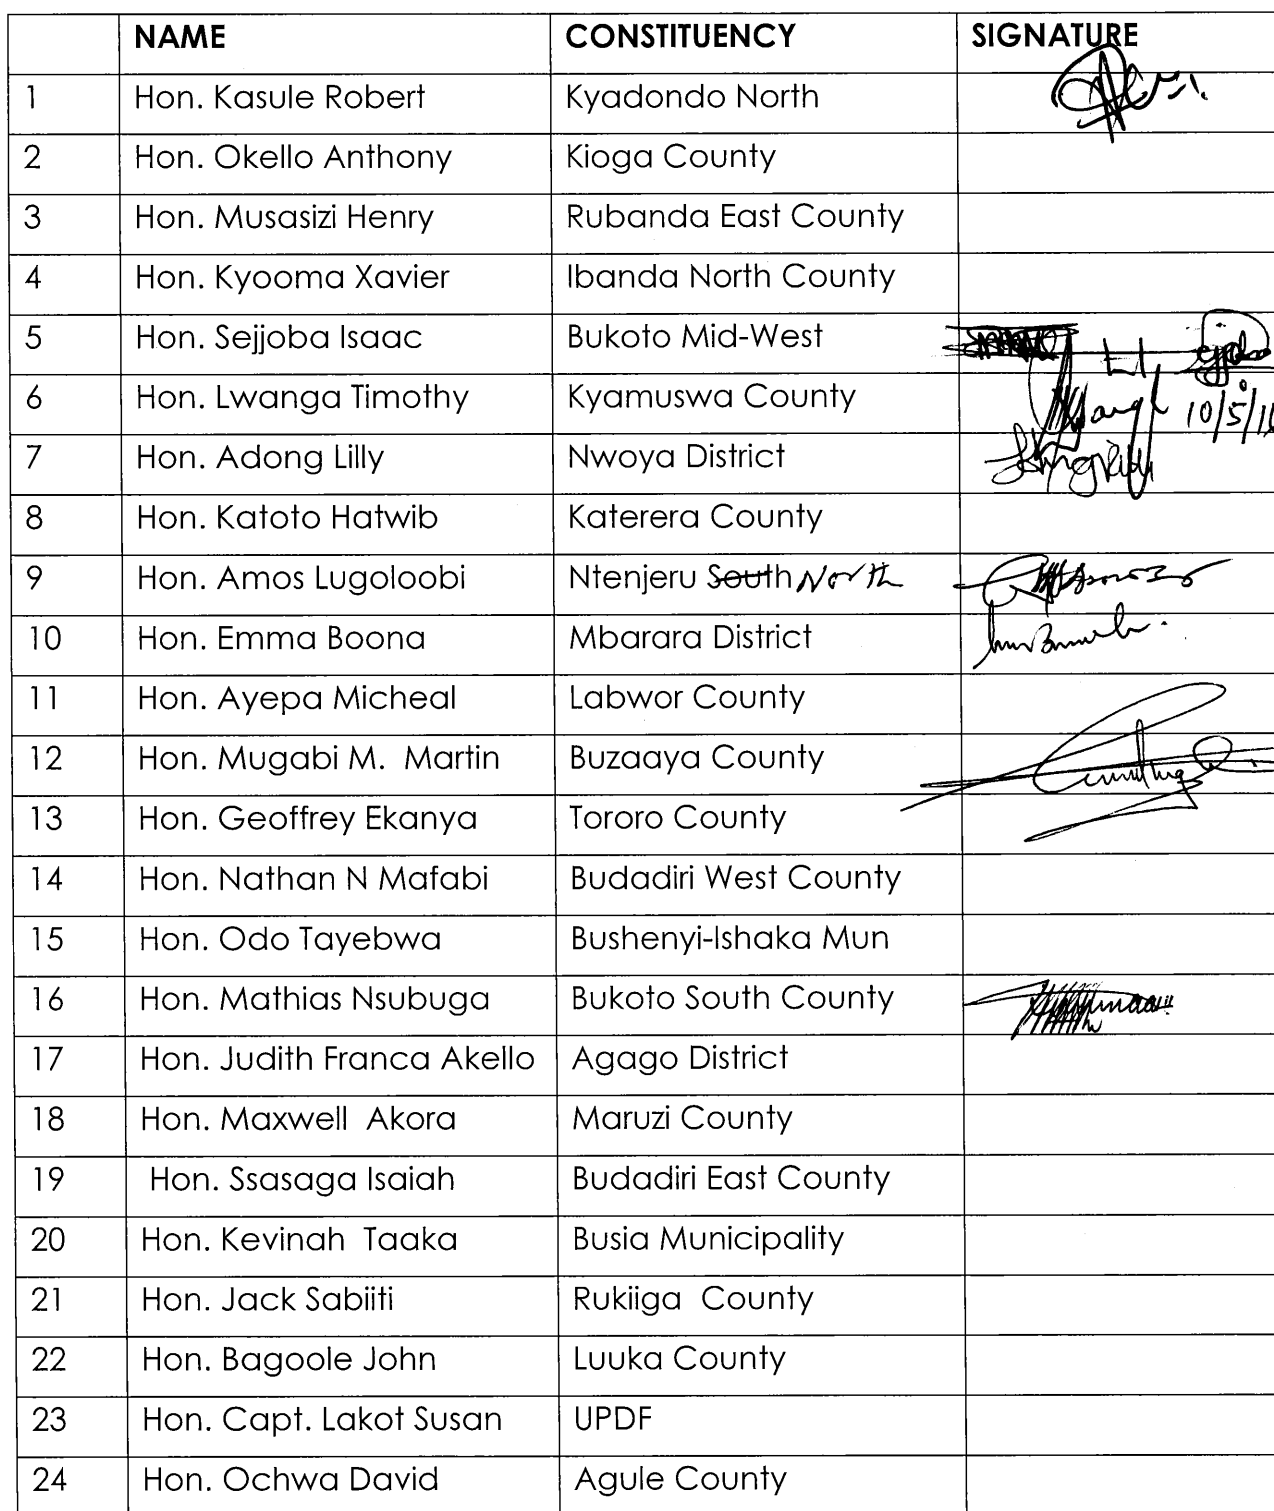 NAME CONSTITUENCY SIGNATURE
1 Hon. Kasule Robert Kyadondo North
2 Hon. Okello Anthony Kioga County
3 Hon. Musasizi Henry Rubanda East County
4 Hon. Kyooma Xavier Ibanda North County
5 Hon. Sejjoba Isaac Bukoto Mid-West
6 Hon. Lwanga Timothy Kyamuswa County
7 Hon. Adong Lilly Nwoya District
8 Hon. Katoto Hatwib Katerera County
9 Hon. Amos Lugoloobi Ntenjeru South North
10 Hon. Emma Boona Mbarara District
11 Hon. Ayepa Micheal Labwor County
12 Hon. Mugabi M. Martin Buzaaya County
13 Hon. Geoffrey Ekanya Tororo County
14 Hon. Nathan N Mafabi Budadiri West County
15 Hon. Odo Tayebwa Bushenyi-Ishaka Mun
16 Hon. Mathias Nsubuga Bukoto South County
17 Hon. Judith Franca Akello Agago District
18 Hon. Maxwell Akora Maruzi County
19 Hon. Ssasaga Isaiah Budadiri East County
20 Hon. Kevinah Taaka Busia Municipality
21 Hon. Jack Sabiiti Rukiiga County
22 Hon. Bagoole John Luuka County
23 Hon. Capt. Lakot Susan UPDF
24 Hon. Ochwa David Agule County